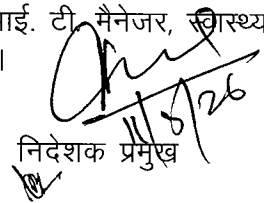 आई. टी. मैनेजर, स्वास्थ्य
।
11/6/26
निदेशक प्रमुख